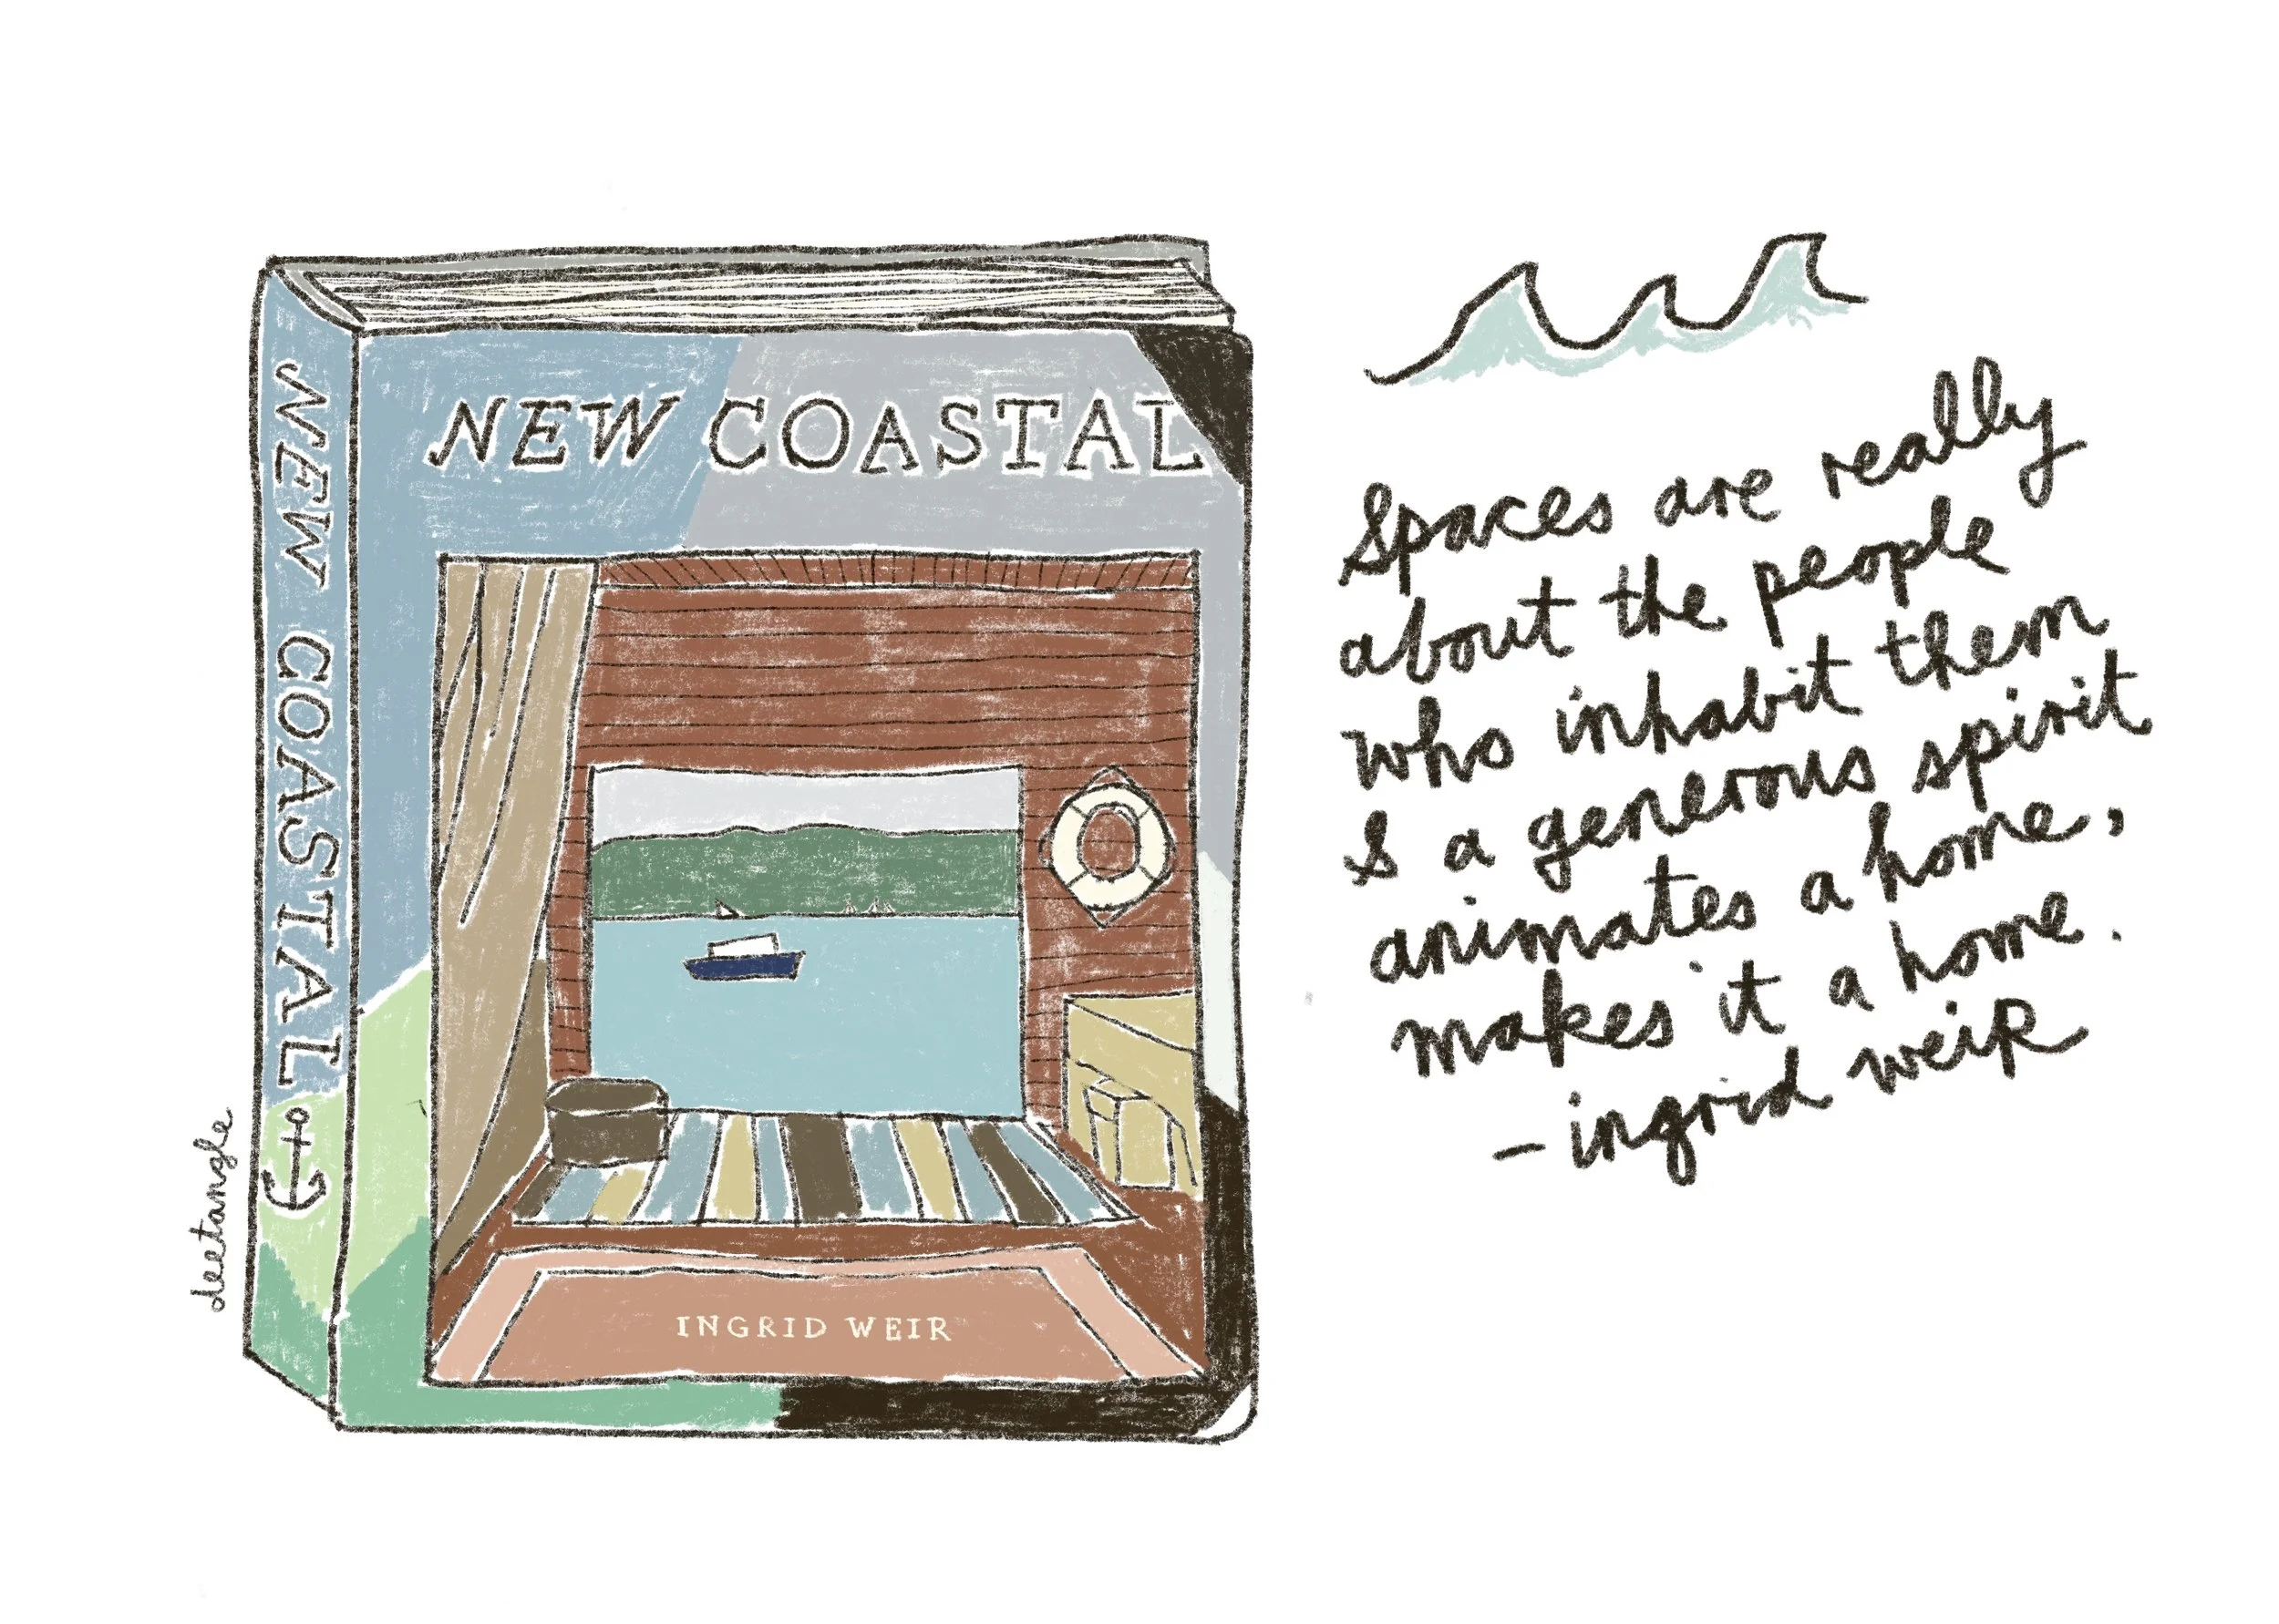 NEW COASTAL
NEW COASTAL
INGRID WEIR
deetangle
Spaces are really
about the people
who inhabit them
& a generous spirit
animates a home,
makes it a home.
- ingrid weir